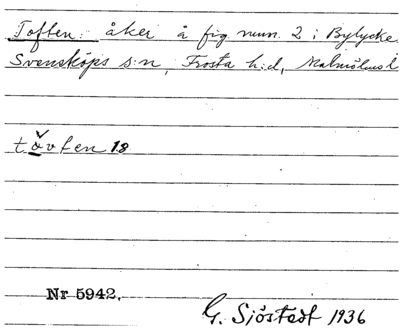 Toften: åker å fig num. 2 i Bylycke
Svensköps s:n, Frosta h:d, Malmöhus l
tǒvten 18
Nr 5942.
G. Sjöstedt 1936